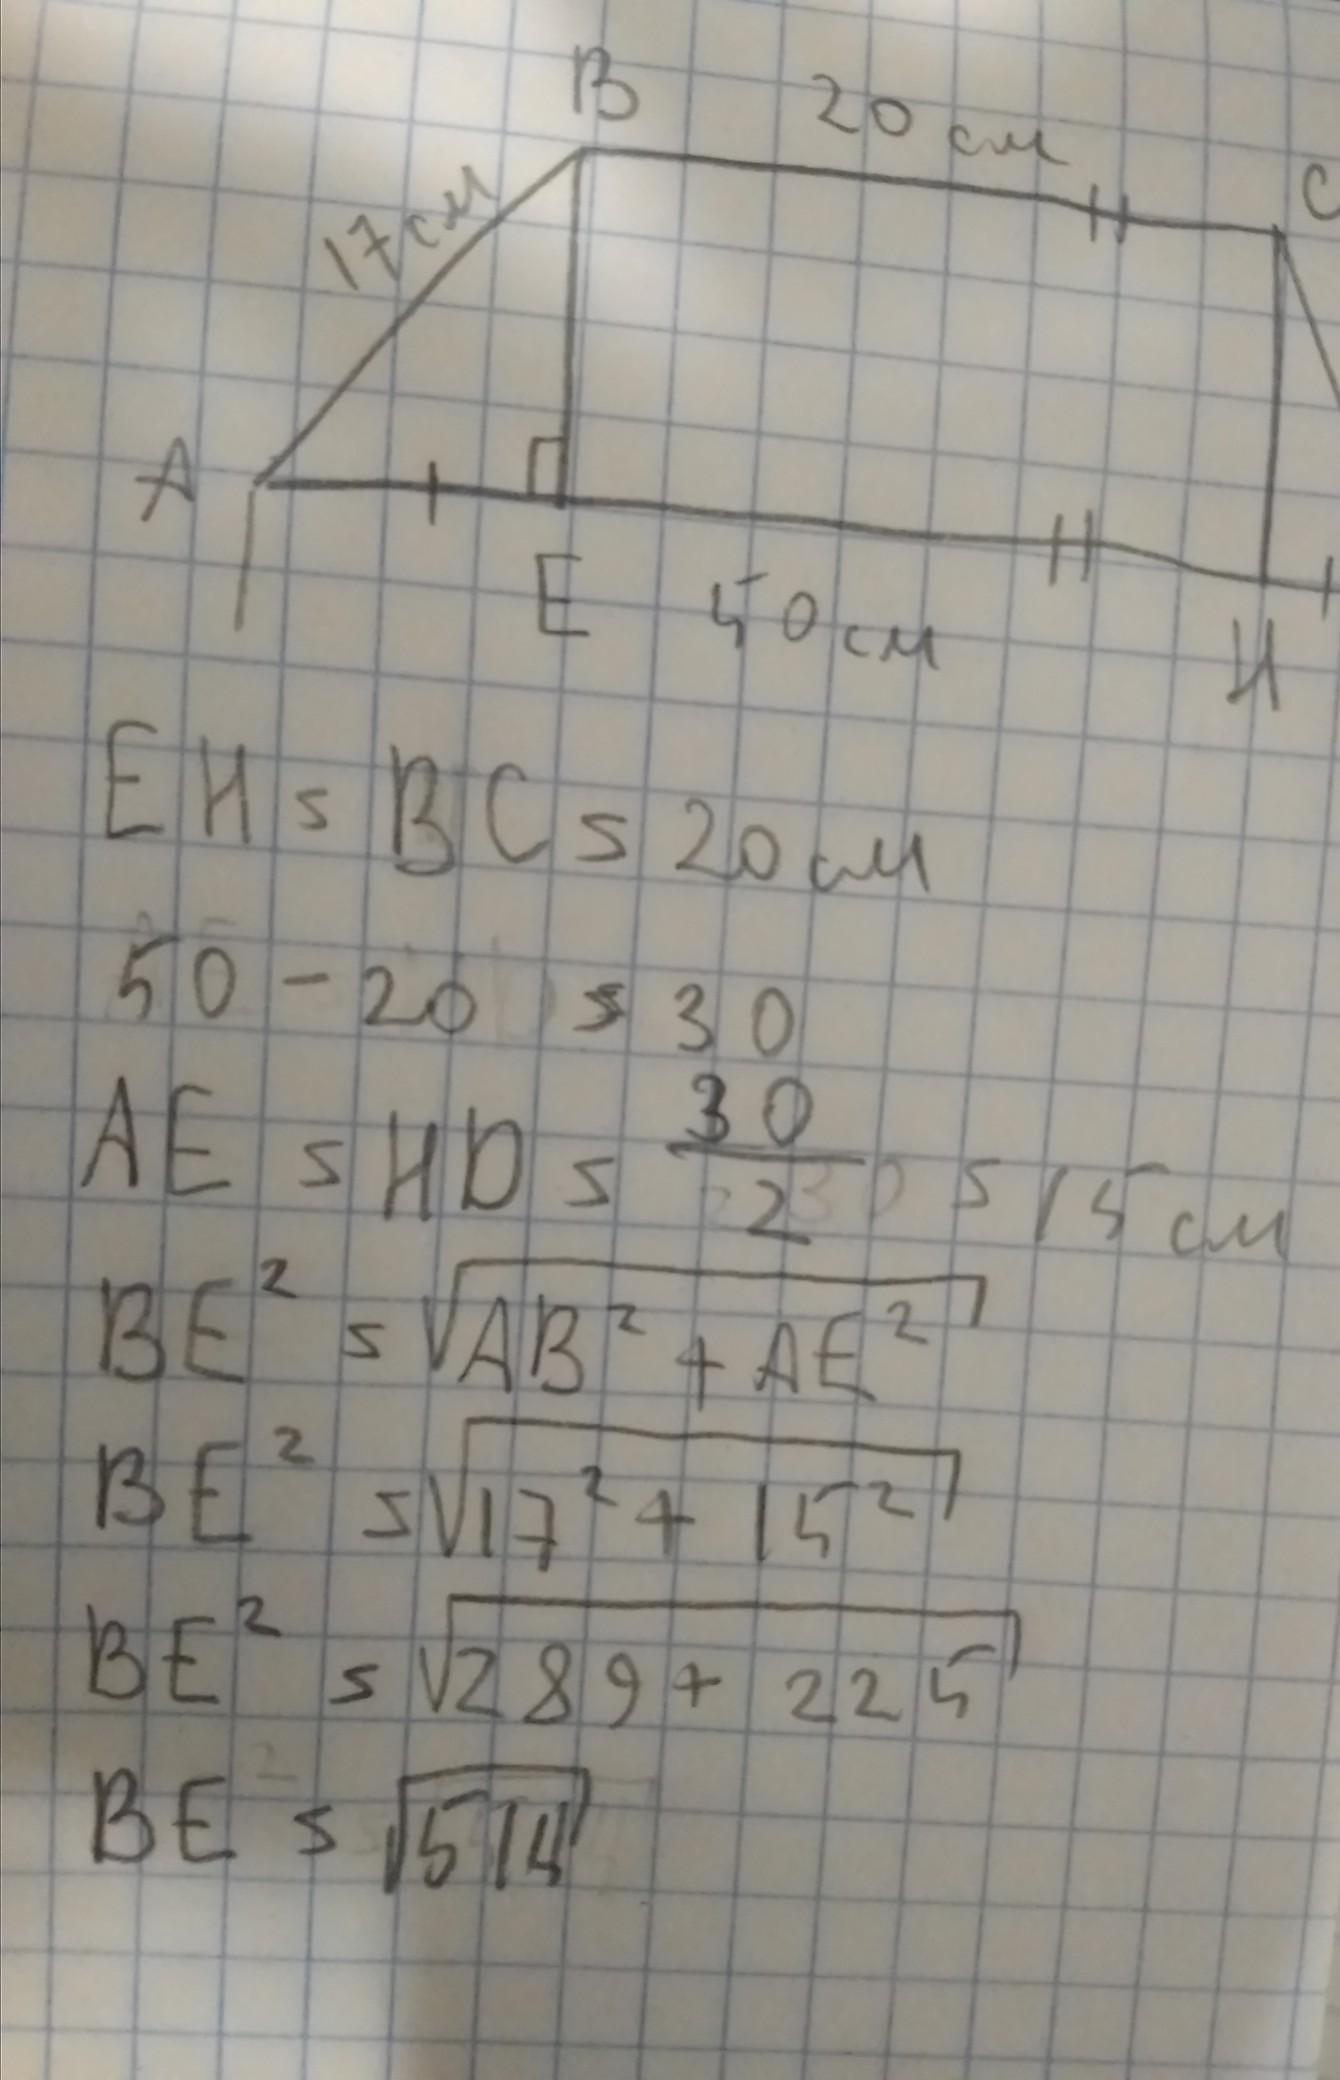 B 20 см C
17 см
A
E 50 см
H
EH = BC = 20 см
50 - 20 = 30
AE = HD = 30/2 = 15 см
BE² = √AB² + AE²
BE² = √17² + 15²
BE² = √289 + 225
BE = √514